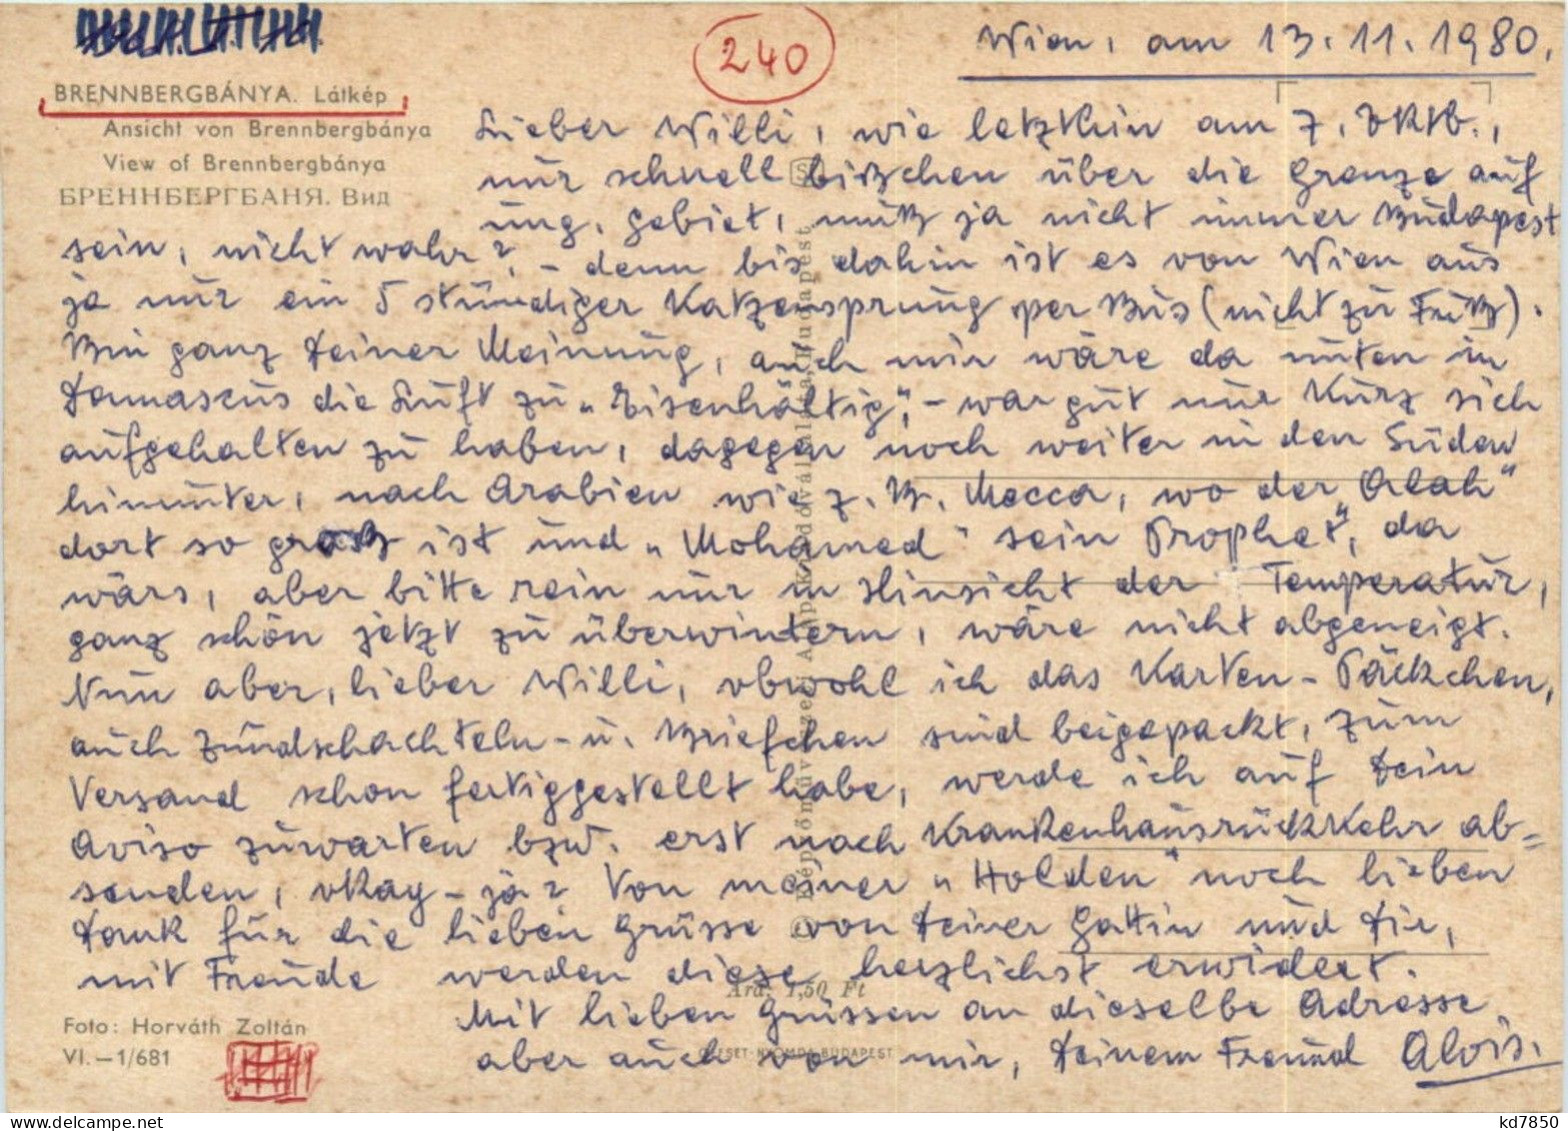 240
Wien, am 13.11.1980.
BRENNBERGBÁNYA. Látkép
Ansicht von Brennbergbánya
View of Brennbergbánya
БРЕННБЕРГБАНЯ. Вид
Lieber Willi, wie letzthin am 7. Oktb.,
nur schnell bißchen über die Grenze auf
ung. Gebiet, muß ja nicht immer Budapest
sein, nicht wahr?, - denn bis dahin ist es von Wien aus
ja nur ein 5 stündiger Katzensprung per Bus (nicht zu Fuß).
Bin ganz Deiner Meinung, auch mir wäre da unten in
Damascus die Luft zu "Eisenhältig", - war gut nur kurz sich
aufgehalten zu haben, dagegen noch weiter in den Süden
hinunter, nach Arabien wie z. B. Mecca, wo der "Alah"
dort so groß ist und "Mohamed" sein Prophet", da
wärs, aber bitte rein nur in Hinsicht der Temperatur,
ganz schön jetzt zu überwintern, wäre nicht abgeneigt.
Nun aber, lieber Willi, obwohl ich das Karten-Päckchen,
auch Zündschachteln- u. Briefchen sind beigepackt, zum
Versand schon fertiggestellt habe, werde ich auf Dein
Aviso zuwarten bzw. erst nach Krankenhausrückkehr ab=
senden, okay - ja? Von meiner "Holden" noch lieben
Dank für die lieben Grüsse von Deiner Gattin und Dir,
mit Freude werden diese herzlichst erwidert.
Mit lieben Grüssen an dieselbe Adresse,
aber auch von mir, Deinem Freund Alois.
Ára: 1,50 Ft
Foto: Horváth Zoltán
VI. — 1/681
OFFSET-NYOMDA BUDAPEST
kd7850